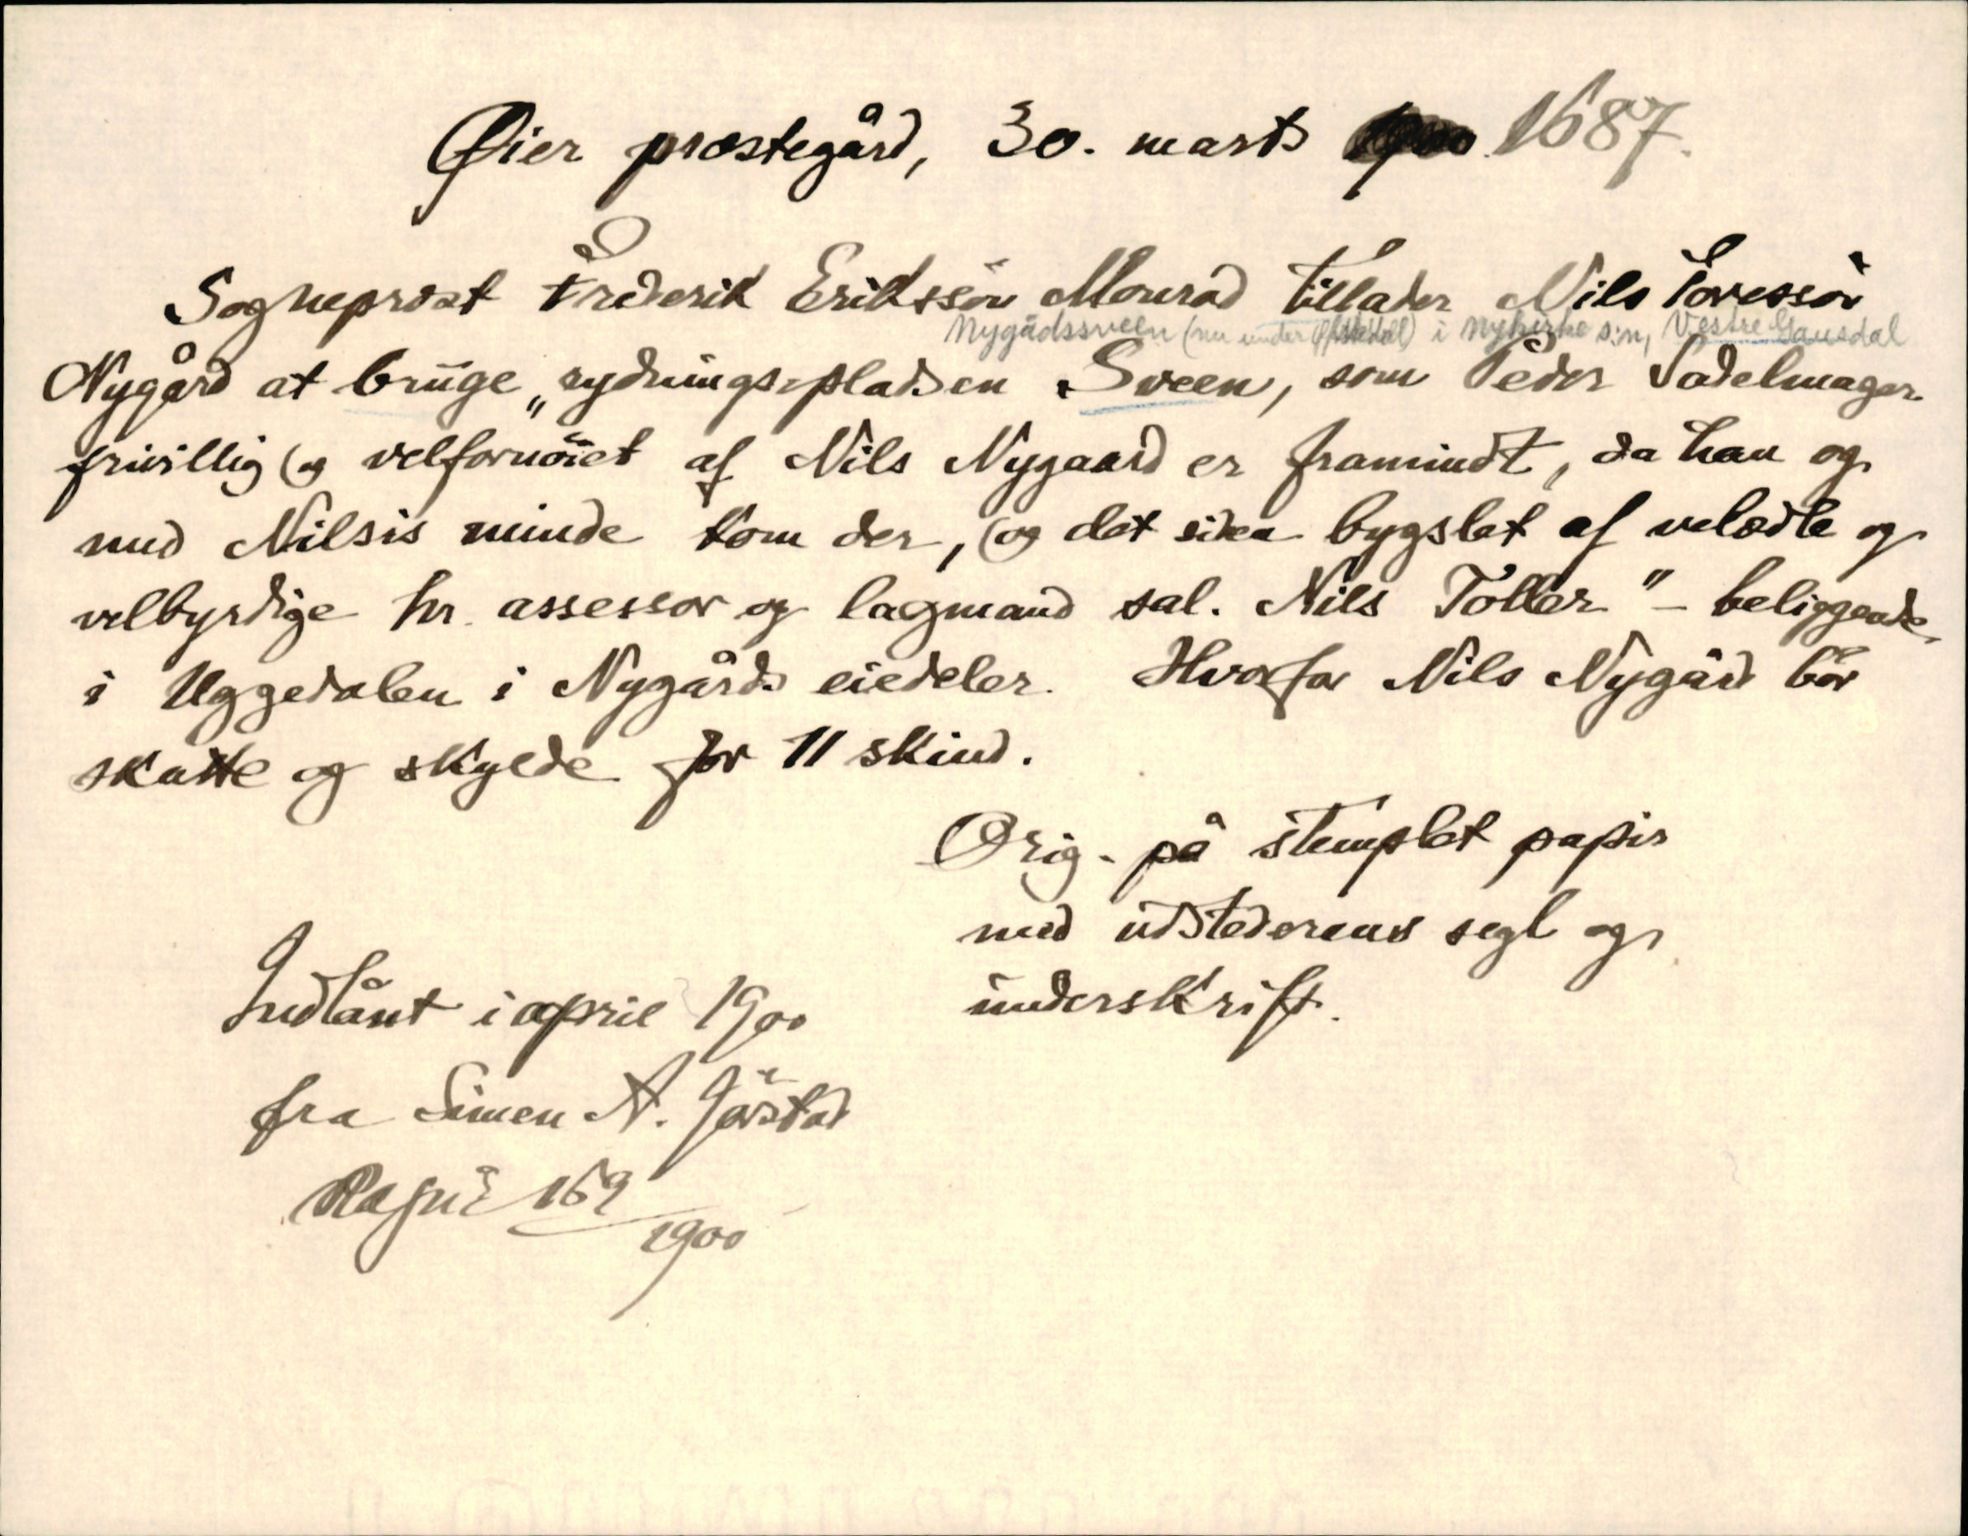 Øier prestegård, 30. marts 1687.
Sogneprest Frederik Erikssön Monrad tillader Nils Toressön
Nygådssveen (nu under ) i Nykirke s:n, Vestre Gausdal
Nygård at bruge „rydningspladsen Sveen, som Peder Sadelmager
frivillig (og velfornöiet af Nils Nygaard er framindt, da han og
med Nilsis minde kom der, (og det siden bygslet af velædle og
velbyrdige hr. assessor og lagmand sal. Nils Toller" – beliggende
i Uggedalen i Nygårds eiedeler. Hvorfor Nils Nygård bör
skatte og skylde for 11 skind.
Orig. på stemplet papir
med udstederens segl og
underskrift.
Indlånt i april 1900
fra Simen A. Jörstad
1900